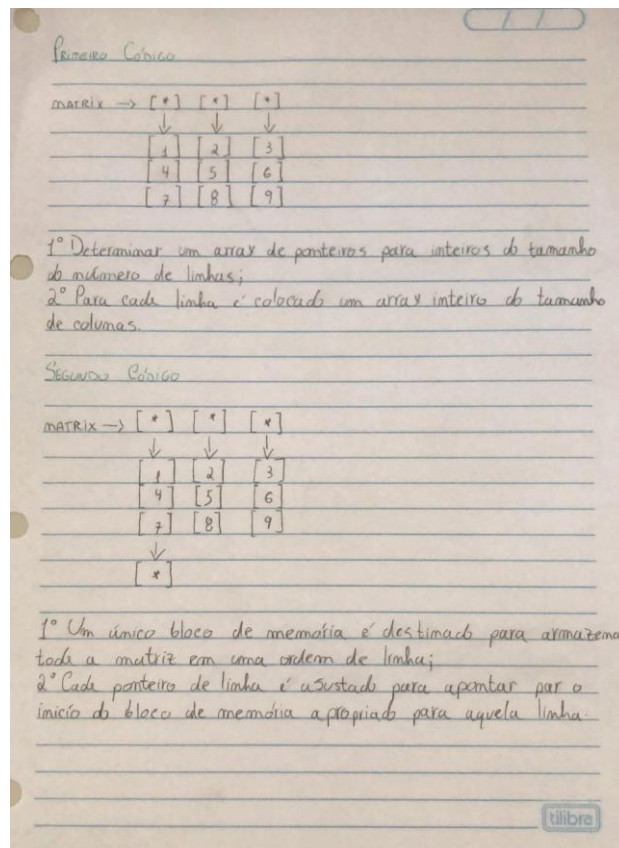 PRIMEIRO CÓDIGO
MATRIX → [*] [*] [*]
↓ ↓ ↓
[1] [2] [3]
[4] [5] [6]
[7] [8] [9]
1° Determinar um array de ponteiros para inteiros do tamanho
do número de linhas;
2° Para cada linha é colocado um array inteiro do tamanho
de colunas.
SEGUNDO CÓDIGO
MATRIX → [*] [*] [*]
↓ ↓ ↓
[1] [2] [3]
[4] [5] [6]
[7] [8] [9]
↓
[*]
1° Um único bloco de memória é destinado para armazena
toda a matriz em uma ordem de linha;
2° Cada ponteiro de linha é ajustado para apontar par o
início do bloco de memória apropriado para aquela linha.
tilibra